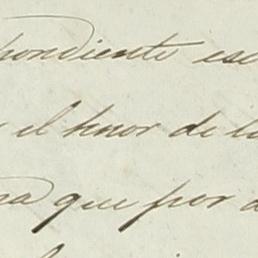 pondiente es
y el tenor de l
na que por a